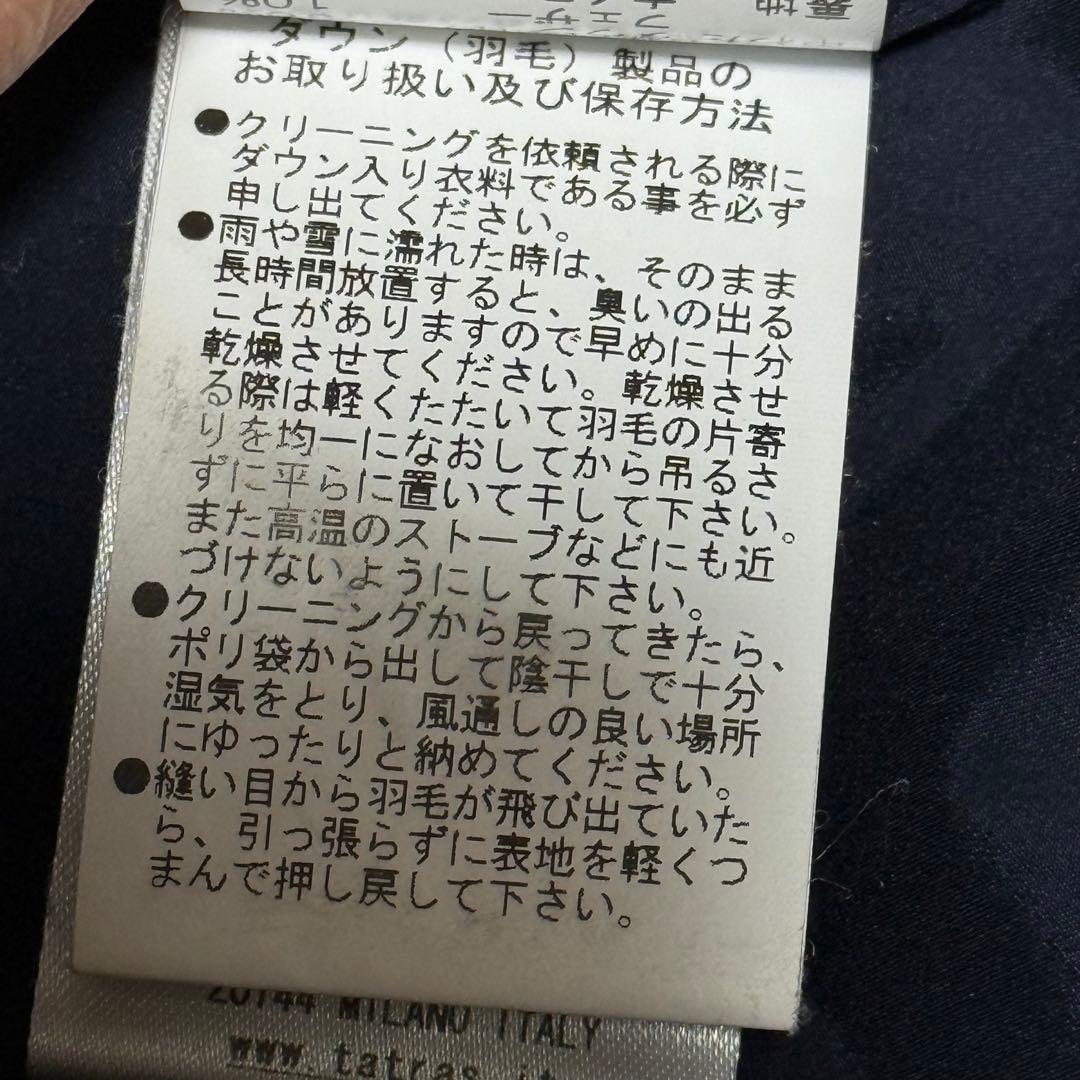 10%
ダウン（羽毛）製品の
お取り扱い及び保存方法
●クリーニングを依頼される際に
ダウン入り衣料である事を必ず
申し出てください。
●雨や雪に濡れた時は、そのまま
長時間放置すると、臭いの出る
ことがありますので早めに十分
乾燥させてください。乾燥させ
る際は軽くたたいて羽毛の片寄
りを均一になおしてから吊るさ
ずに平らに置いて干して下さい。
また高温のストーブなどにも近
づけないようにして下さい。
●クリーニングから戻ってきたら、
ポリ袋から出して陰干しで十分
湿気をとり、風通しの良い場所
にゆったりと納めてください。
●縫い目から羽毛が飛び出ていた
ら、引っ張らずに表地を軽くつ
まんで押し戻して下さい。
20144 MILANO ITALY
www.tatras.it